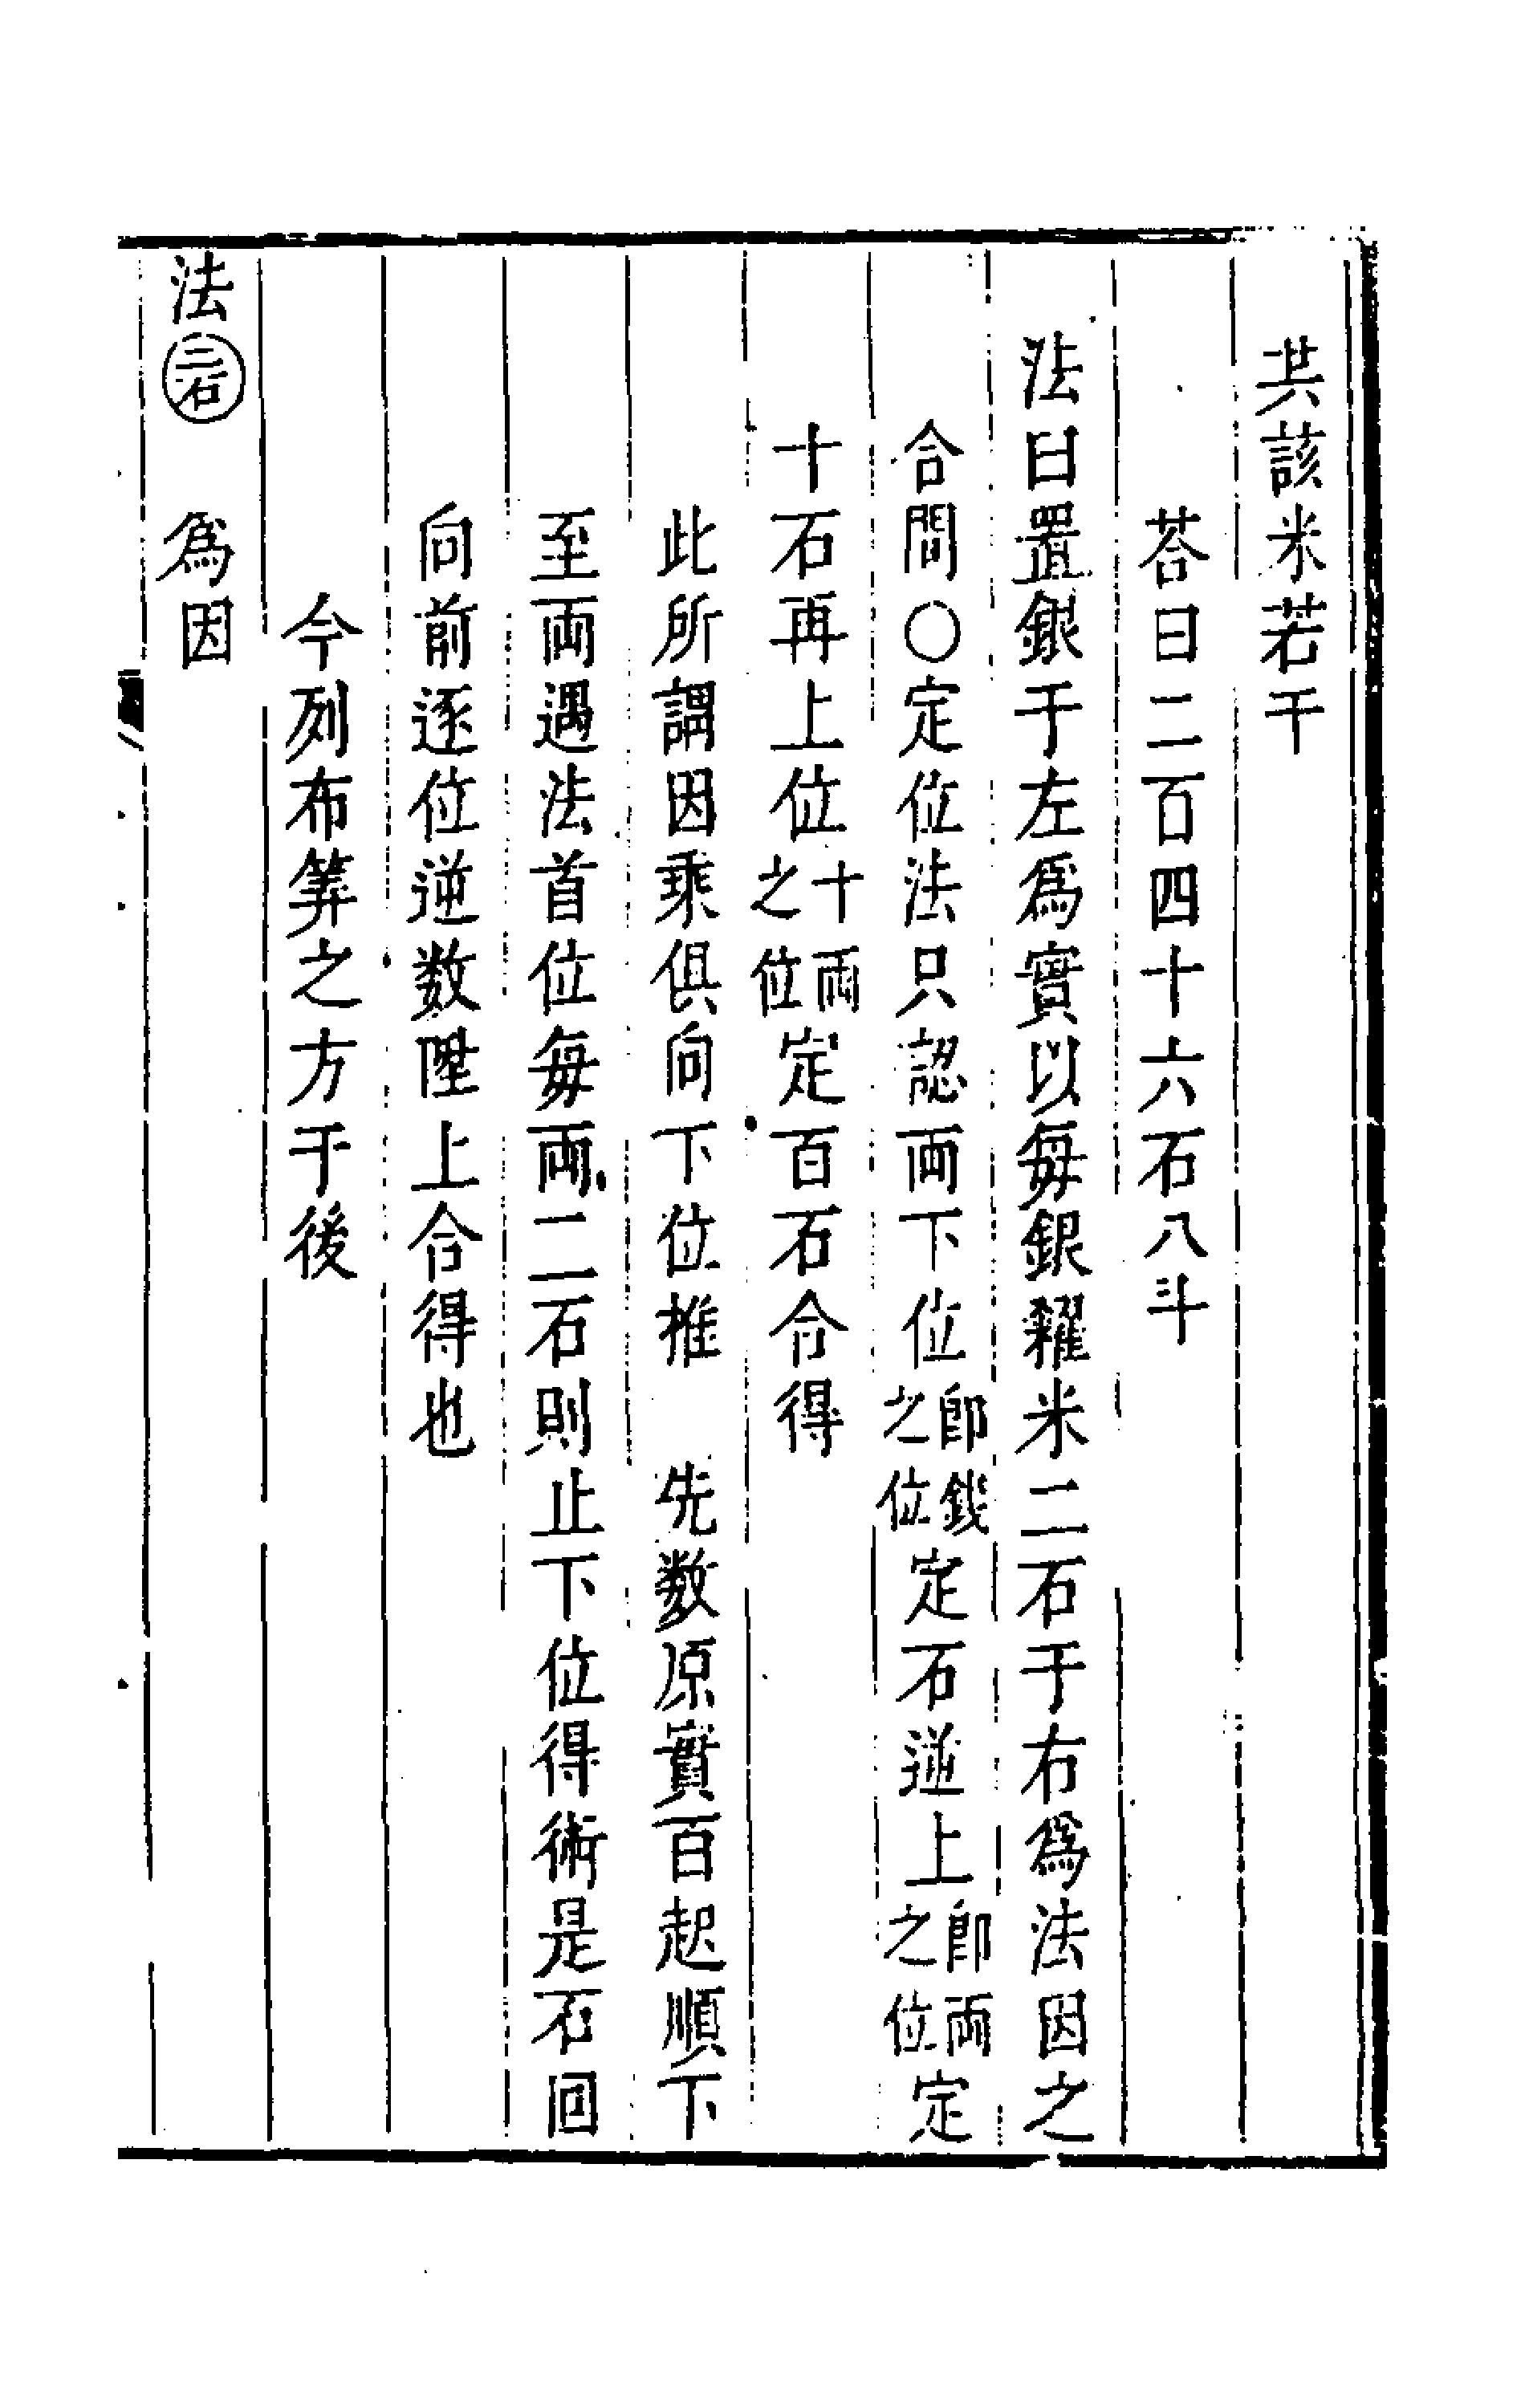 共該米若干
荅曰二百四十六石八斗
法曰置銀于左爲實以每銀糴米二石于右爲法因之
合問○定位法只認両下位即錢之位定石逆上即両之位定
十石再上位十両之位定百石合得
此所謂因乘俱向下位推　先数原實百起順下
至両遇法首位每両二石則止下位得術是石回
向前逐位逆数陞上合得也
今列布筭之方于後
法二石　爲因